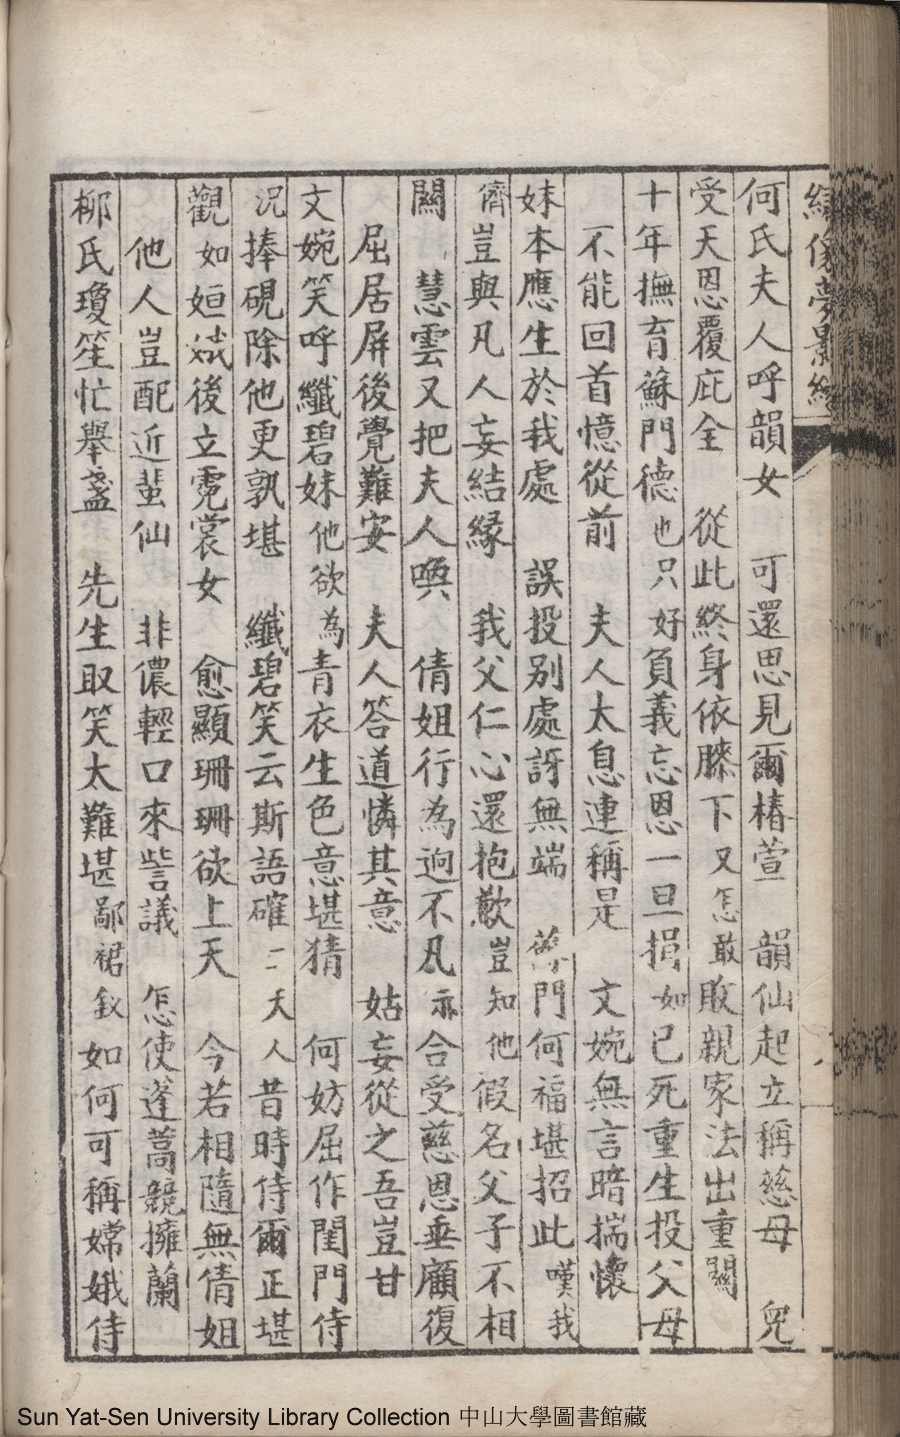 繡像夢影緣
何氏夫人呼韻女　可還思見爾椿萱　韻仙起立稱慈母　兒
受天恩覆庇全　從此終身依膝下又怎敢敗親家法出重關
十年撫育蘇門德也只好負義忘恩一旦捐如已死重生投父母
不能回首憶從前　夫人太息連稱是　文婉無言暗揣懷
妹本應生於我處　誤投別處訝無端　蘇門何福堪招此嘆我
儕豈與凡人妄結緣　我父仁心還抱歉豈知他假名父子不相
關　慧雲又把夫人喚　倩姐行為迥不凡亦合受慈恩垂顧復
屈居屏後覺難安　夫人答道憐其意　姑妄從之吾豈甘
文婉笑呼纖碧妹他欲為青衣生色意堪猜　何妨屈作閨門侍
況捧硯除他更孰堪　纖碧笑云斯語確二夫人昔時侍爾正堪
觀如姮娥後立霓裳女　愈顯珊珊欲上天　今若相隨無倩姐
他人豈配近蜚仙　非儂輕口來訾議　怎使蓬蒿競擁蘭
柳氏瓊笙忙舉盞　先生取笑太難堪鄙裙釵如何可稱嫦娥侍
Sun Yat-Sen University Library Collection 中山大學圖書館藏